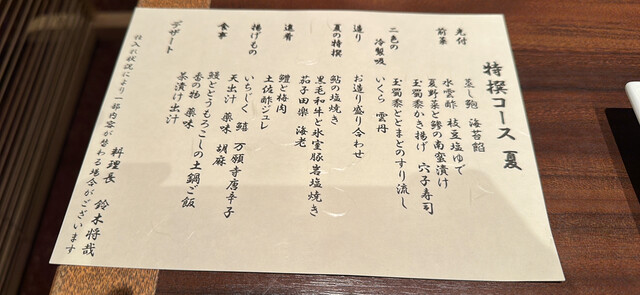 特撰コース 夏
先付 蒸し鮑 海苔餡
前菜 水雲酢 枝豆塩ゆで
夏野菜と鱧の南蛮漬け
玉蜀黍かき揚げ 穴子寿司
二色の冷製吸 玉蜀黍ととまとのすり流し
いくら 雲丹
造り お造り盛り合わせ
夏の特撰 鮎の塩焼き
黒毛和牛と氷室豚岩塩焼き
茄子田楽 海老
進肴 鱧と梅肉
土佐酢ジュレ
揚げもの いちじく 鱚 万願寺唐辛子
天出汁 薬味 胡麻
食事 鰻とうもろこしの土鍋ご飯
香の物 薬味
茶漬け出汁
デザート
料理長 鈴木将哉
仕入れ状況により一部内容が替わる場合がございます